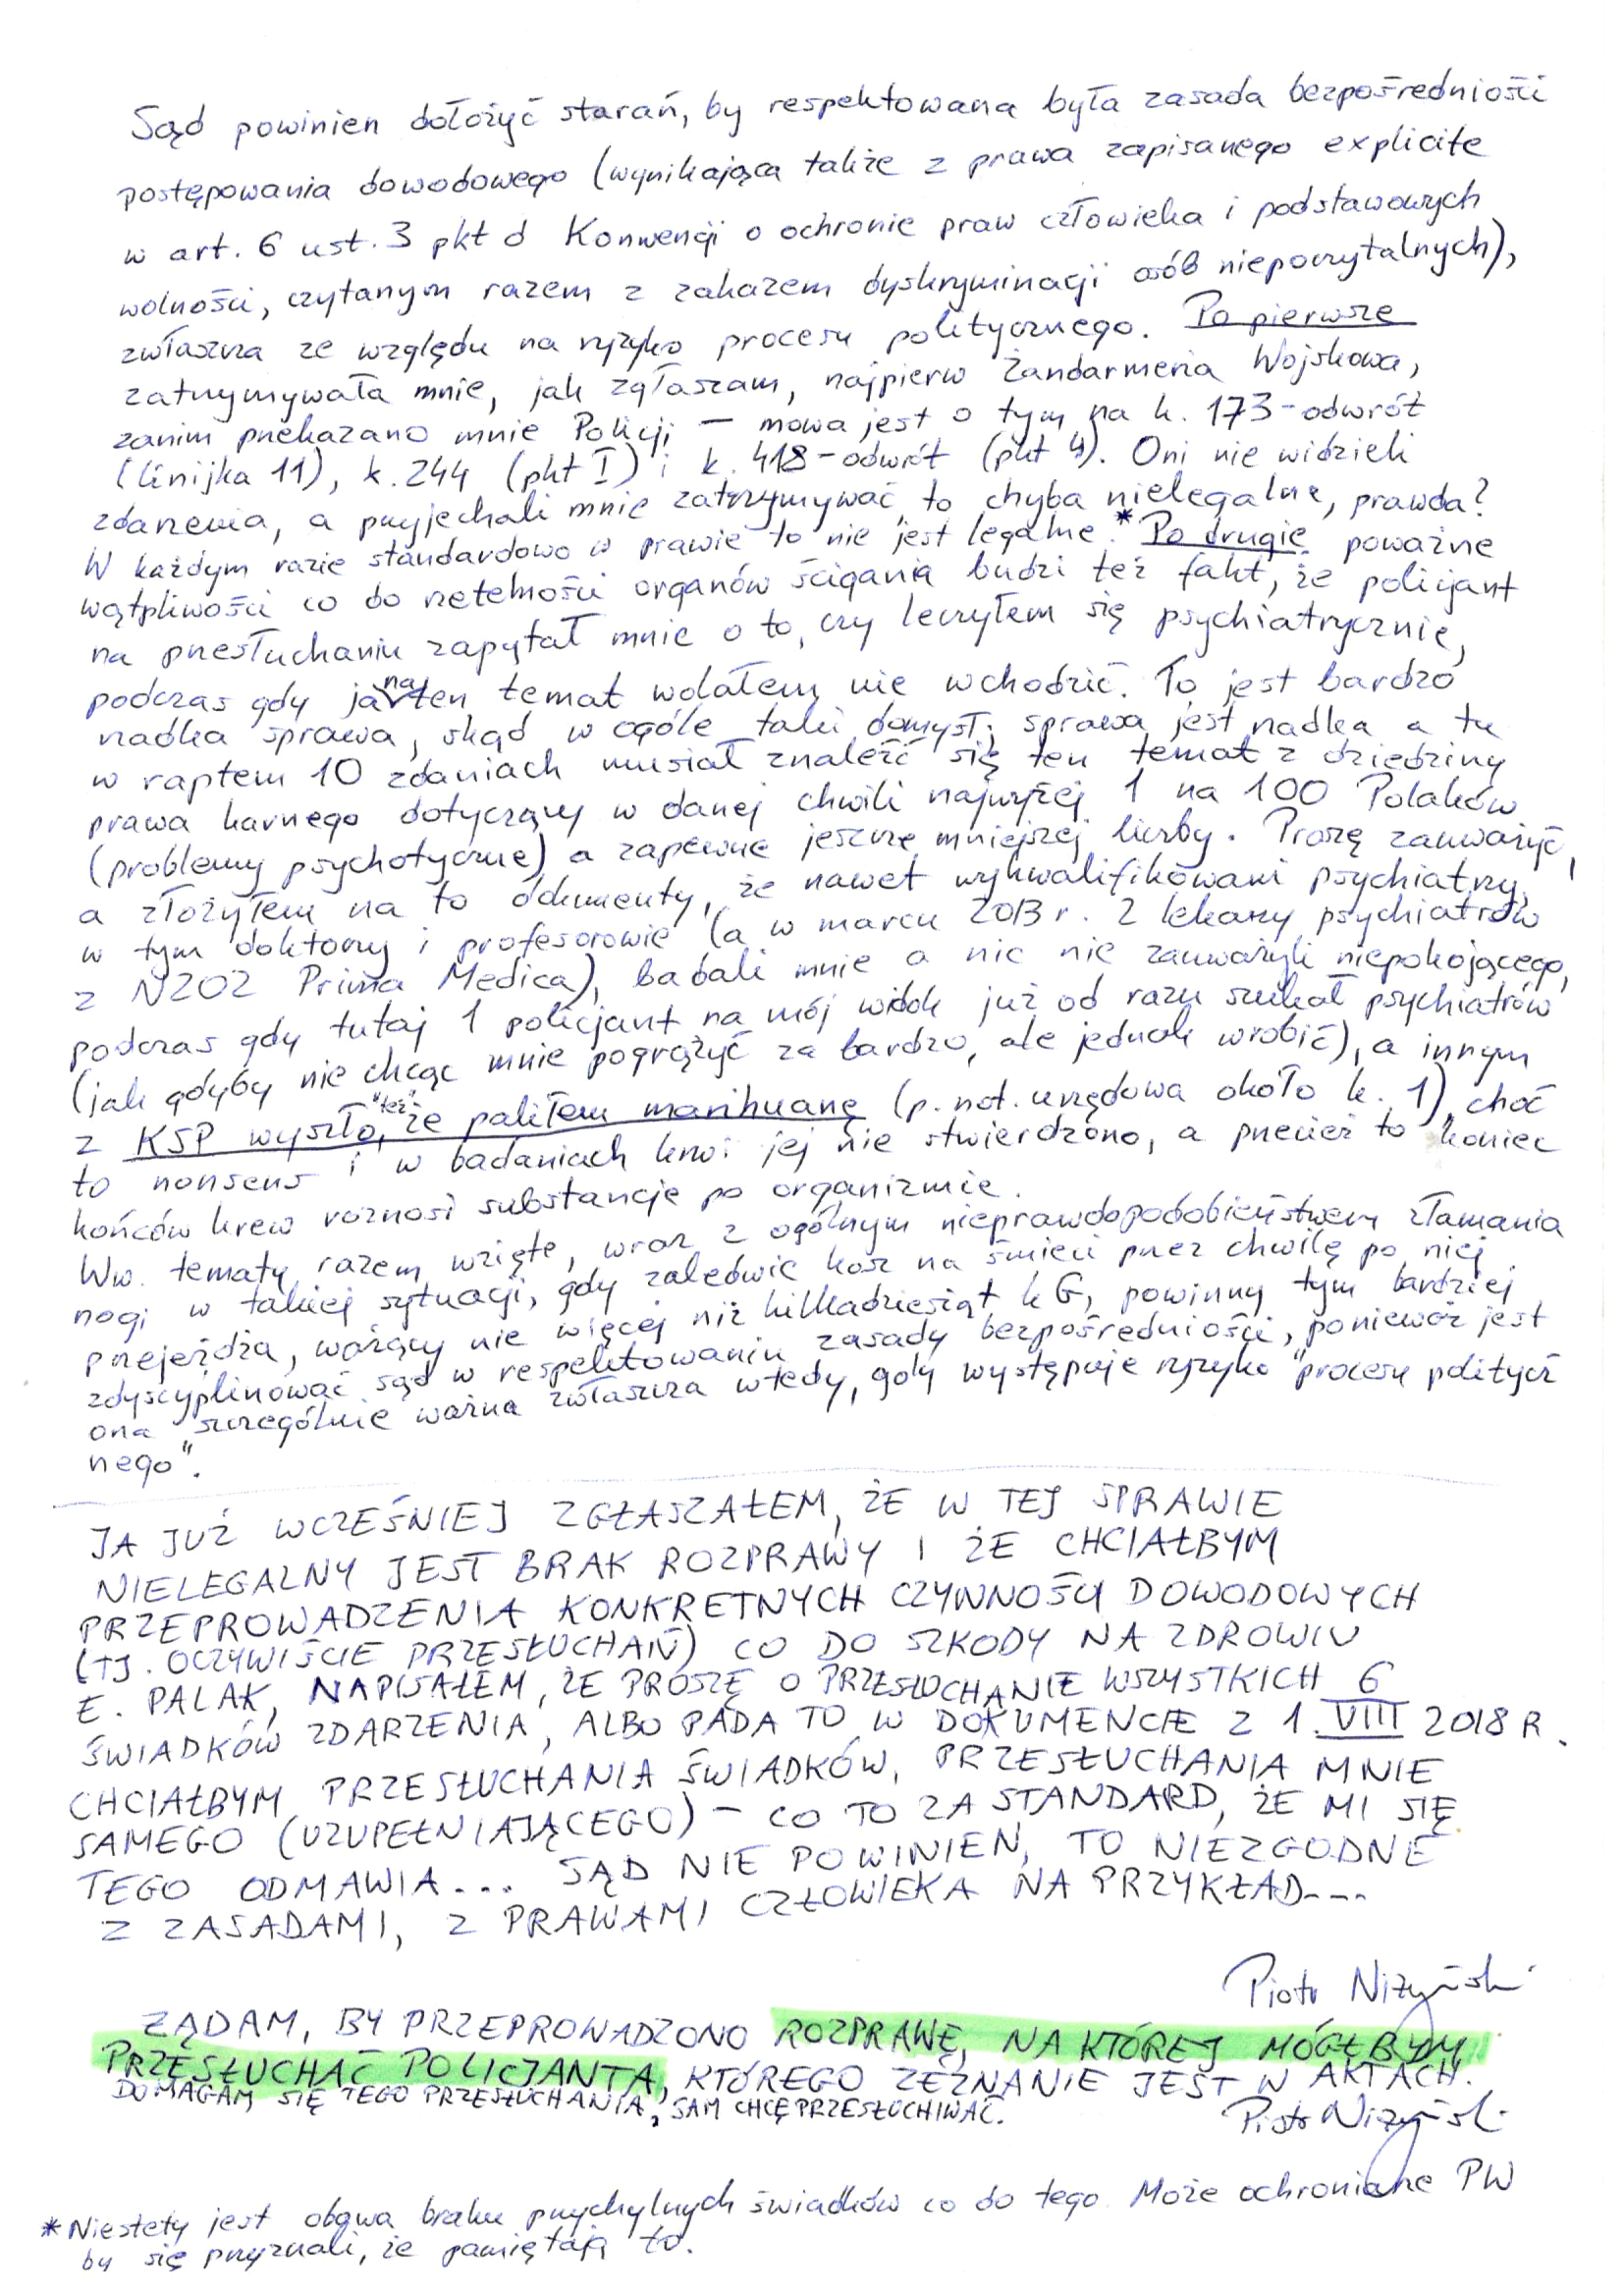 Sąd powinien dołożyć starań, by respektowana była zasada bezpośredniości
postępowania dowodowego (wynikająca także z prawa zapisanego explicite
w art. 6 ust. 3 pkt d Konwencji o ochronie praw człowieka i podstawowych
wolności, czytanym razem z zakazem dyskryminacji osób niepoczytalnych),
zwłaszcza ze względu na ryzyko procesu politycznego. Po pierwsze
zatrzymywała mnie, jak zgłaszam, najpierw Żandarmeria Wojskowa,
zanim przekazano mnie Policji — mowa jest o tym na k. 173-odwrót
(linijka 11), k. 244 (pkt I) i k. 418-odwrót (pkt 4). Oni nie widzieli
zdarzenia, a przyjechali mnie zatrzymywać, to chyba nielegalne, prawda?
W każdym razie standardowo w prawie to nie jest legalne.* Po drugie poważne
wątpliwości co do rzetelności organów ścigania budzi też fakt, że policjant
na przesłuchaniu zapytał mnie o to, czy leczyłem się psychiatrycznie,
podczas gdy ja na ten temat wolałem nie wchodzić. To jest bardzo
rzadka sprawa, skąd w ogóle taki domysł; sprawa jest rzadka a tu
w raptem 10 zdaniach musiał znaleźć się ten temat z dziedziny
prawa karnego dotyczący w danej chwili najwyżej 1 na 100 Polaków
(problemy psychotyczne) a zapewne jeszcze mniejszej liczby. Proszę zauważyć,
a złożyłem na to dokumenty, że nawet wykwalifikowani psychiatrzy,
w tym doktorzy i profesorowie (a w marcu 2013 r. 2 lekarzy psychiatrów
z NZOZ Prima Medica), badali mnie a nic nie zauważyli niepokojącego,
podczas gdy tutaj 1 policjant na mój widok już od razu szukał psychiatrów
(jak gdyby nie chcąc mnie pogrążyć za bardzo, ale jednak wrobić), a innym
z KSP wyszło "też", że paliłem marihuanę (p. not. urzędowa około k. 1), choć
to nonsens i w badaniach krwi jej nie stwierdzono, a przecież to koniec
końców krew roznosi substancje po organizmie.
Ww. tematy razem wzięte, wraz z ogólnym nieprawdopodobieństwem złamania
nogi w takiej sytuacji, gdy zaledwie kosz na śmieci przez chwilę po niej
przejeżdża, ważący nie więcej niż kilkadziesiąt kG, powinny tym bardziej
zdyscyplinować sąd w respektowaniu zasady bezpośredniości, ponieważ jest
ona szczególnie ważna zwłaszcza wtedy, gdy występuje ryzyko "procesu politycz
nego".
JA JUŻ WCZEŚNIEJ ZGŁASZAŁEM, ŻE W TEJ SPRAWIE
NIELEGALNY JEST BRAK ROZPRAWY I ŻE CHCIAŁBYM
PRZEPROWADZENIA KONKRETNYCH CZYNNOŚCI DOWODOWYCH
(TJ. OCZYWIŚCIE PRZESŁUCHAŃ) CO DO SZKODY NA ZDROWIU
E. PALAK, NAPISAŁEM, ŻE PROSZĘ O PRZESŁUCHANIE WSZYSTKICH 6
ŚWIADKÓW ZDARZENIA, ALBO PADA TO W DOKUMENCIE Z 1 VIII 2018 R.
CHCIAŁBYM PRZESŁUCHANIA ŚWIADKÓW, PRZESŁUCHANIA MNIE
SAMEGO (UZUPEŁNIAJĄCEGO) – CO TO ZA STANDARD, ŻE MI SIĘ
TEGO ODMAWIA... SĄD NIE POWINIEN, TO NIEZGODNE
Z ZASADAMI, Z PRAWAMI CZŁOWIEKA NA PRZYKŁAD...
Piotr Niżyński
ŻĄDAM, BY PRZEPROWADZONO ROZPRAWĘ, NA KTÓREJ MÓGŁBYM
PRZESŁUCHAĆ POLICJANTA, KTÓREGO ZEZNANIE JEST W AKTACH.
DOMAGAM SIĘ TEGO PRZESŁUCHANIA, SAM CHCĘ PRZESŁUCHIWAĆ.
Piotr Niżyński
* Niestety jest obawa braku przychylnych świadków co do tego. Może ochroniarze PW
by się przyznali, że pamiętają to.